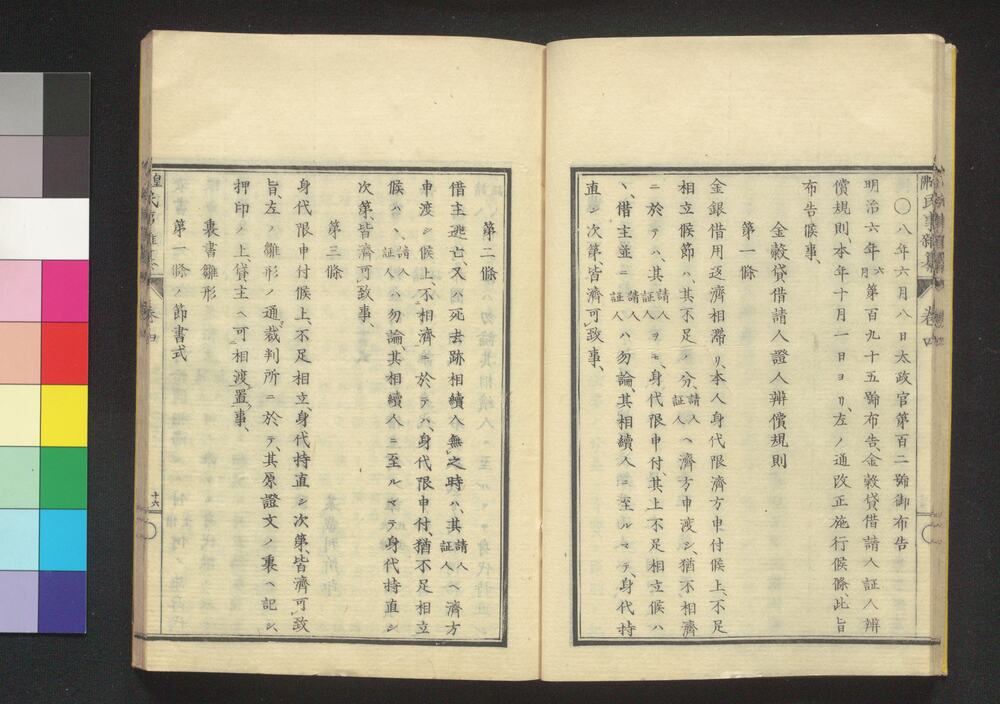 〇八年六月八日太政官第百二號御布告
明治六年六月第百九十五號布告金穀貸借請人証人辨
償規則、本年十月一日ヨリ、左ノ通改正施行候條、此旨
布告候事、
金穀貸借請人證人辨償規則
第一條
金銀借用返濟相滯リ、本人身代限濟方申付候上、不足
相立候節ハ、其不足ノ分、請人証人ヘ濟方申渡シ、猶不相濟
ニ於テハ、其請人証人ヲモ、身代限申付、其上不足相立候ハ
ヽ、借主並ニ請人証人ハ勿論、其相續人ニ至ルマテ、身代持
直シ次第、皆濟可致事、
第二條
借主逃亡、又ハ死去跡相續人無之時ハ、其請人証人ヘ濟方
申渡シ候上、不相濟ニ於テハ、身代限申付、猶不足相立
候ハヽ、請人証人ハ勿論、其相續人ニ至ルマテ身代持直シ
次第、皆濟可致事、
第三條
身代限申付候上、不足相立、身代持直シ次第、皆濟可致
旨、左ノ雛形ノ通裁判所ニ於テ、其原證文ノ裏ヘ記シ、
押印ノ上、貸主ヘ可相渡置事、
裏書雛形
第一條ノ節書式
卷四
十六